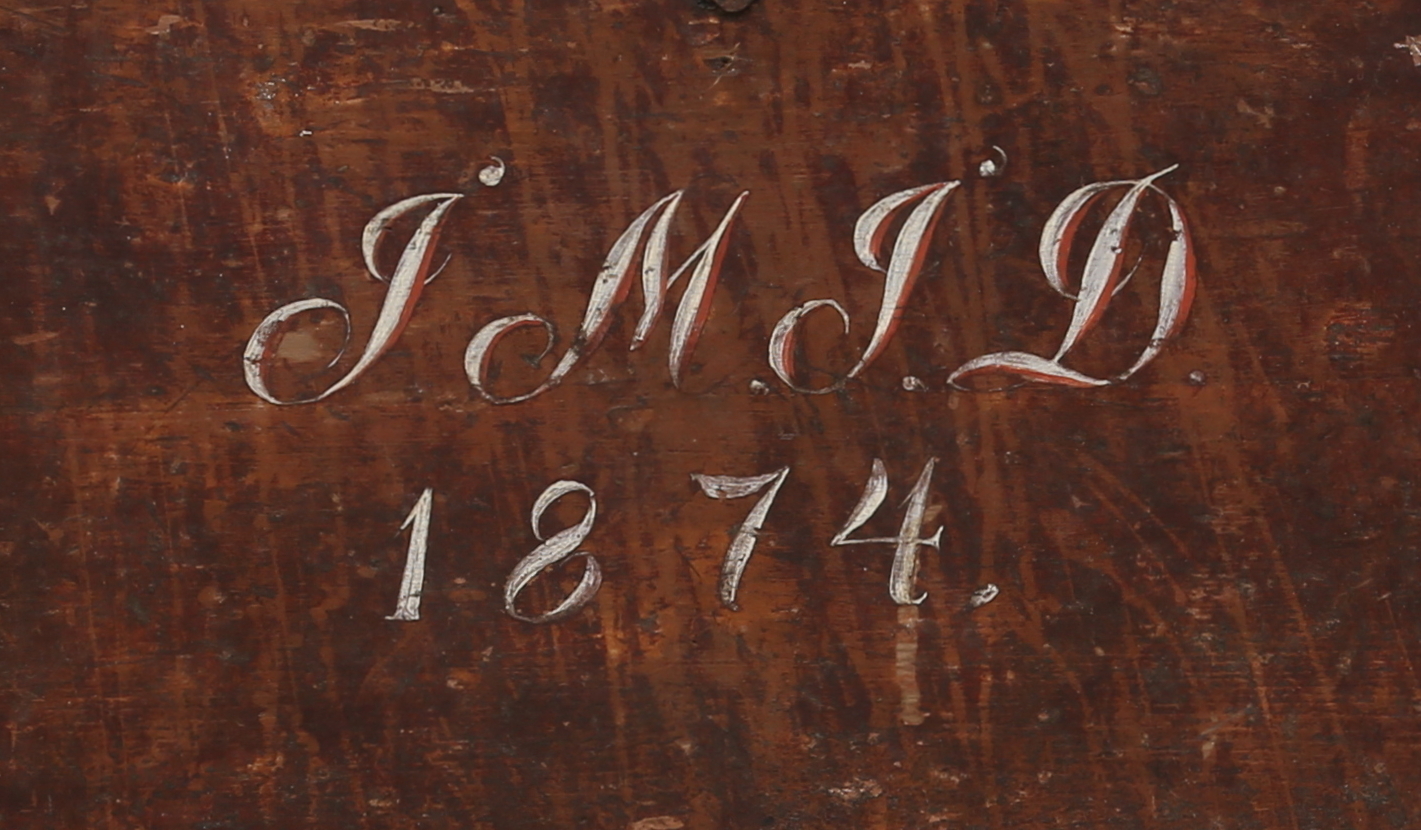 I M. I. D.
1874.